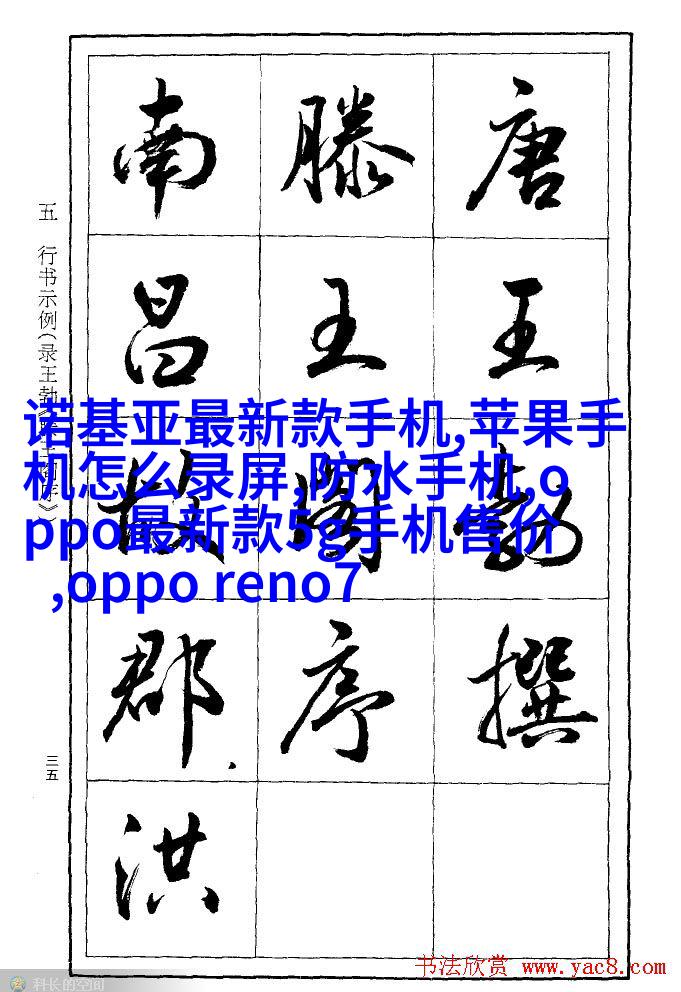 唐王勃撰
滕王阁序
南昌故郡洪
五 行书示例(录王勃《滕王阁序》)
三五
诺基亚最新款手机,苹果手
机怎么录屏,防水手机,o
ppo最新款5g手机售价
,oppo reno7
书法欣赏 www.yac8.com
科长的空间